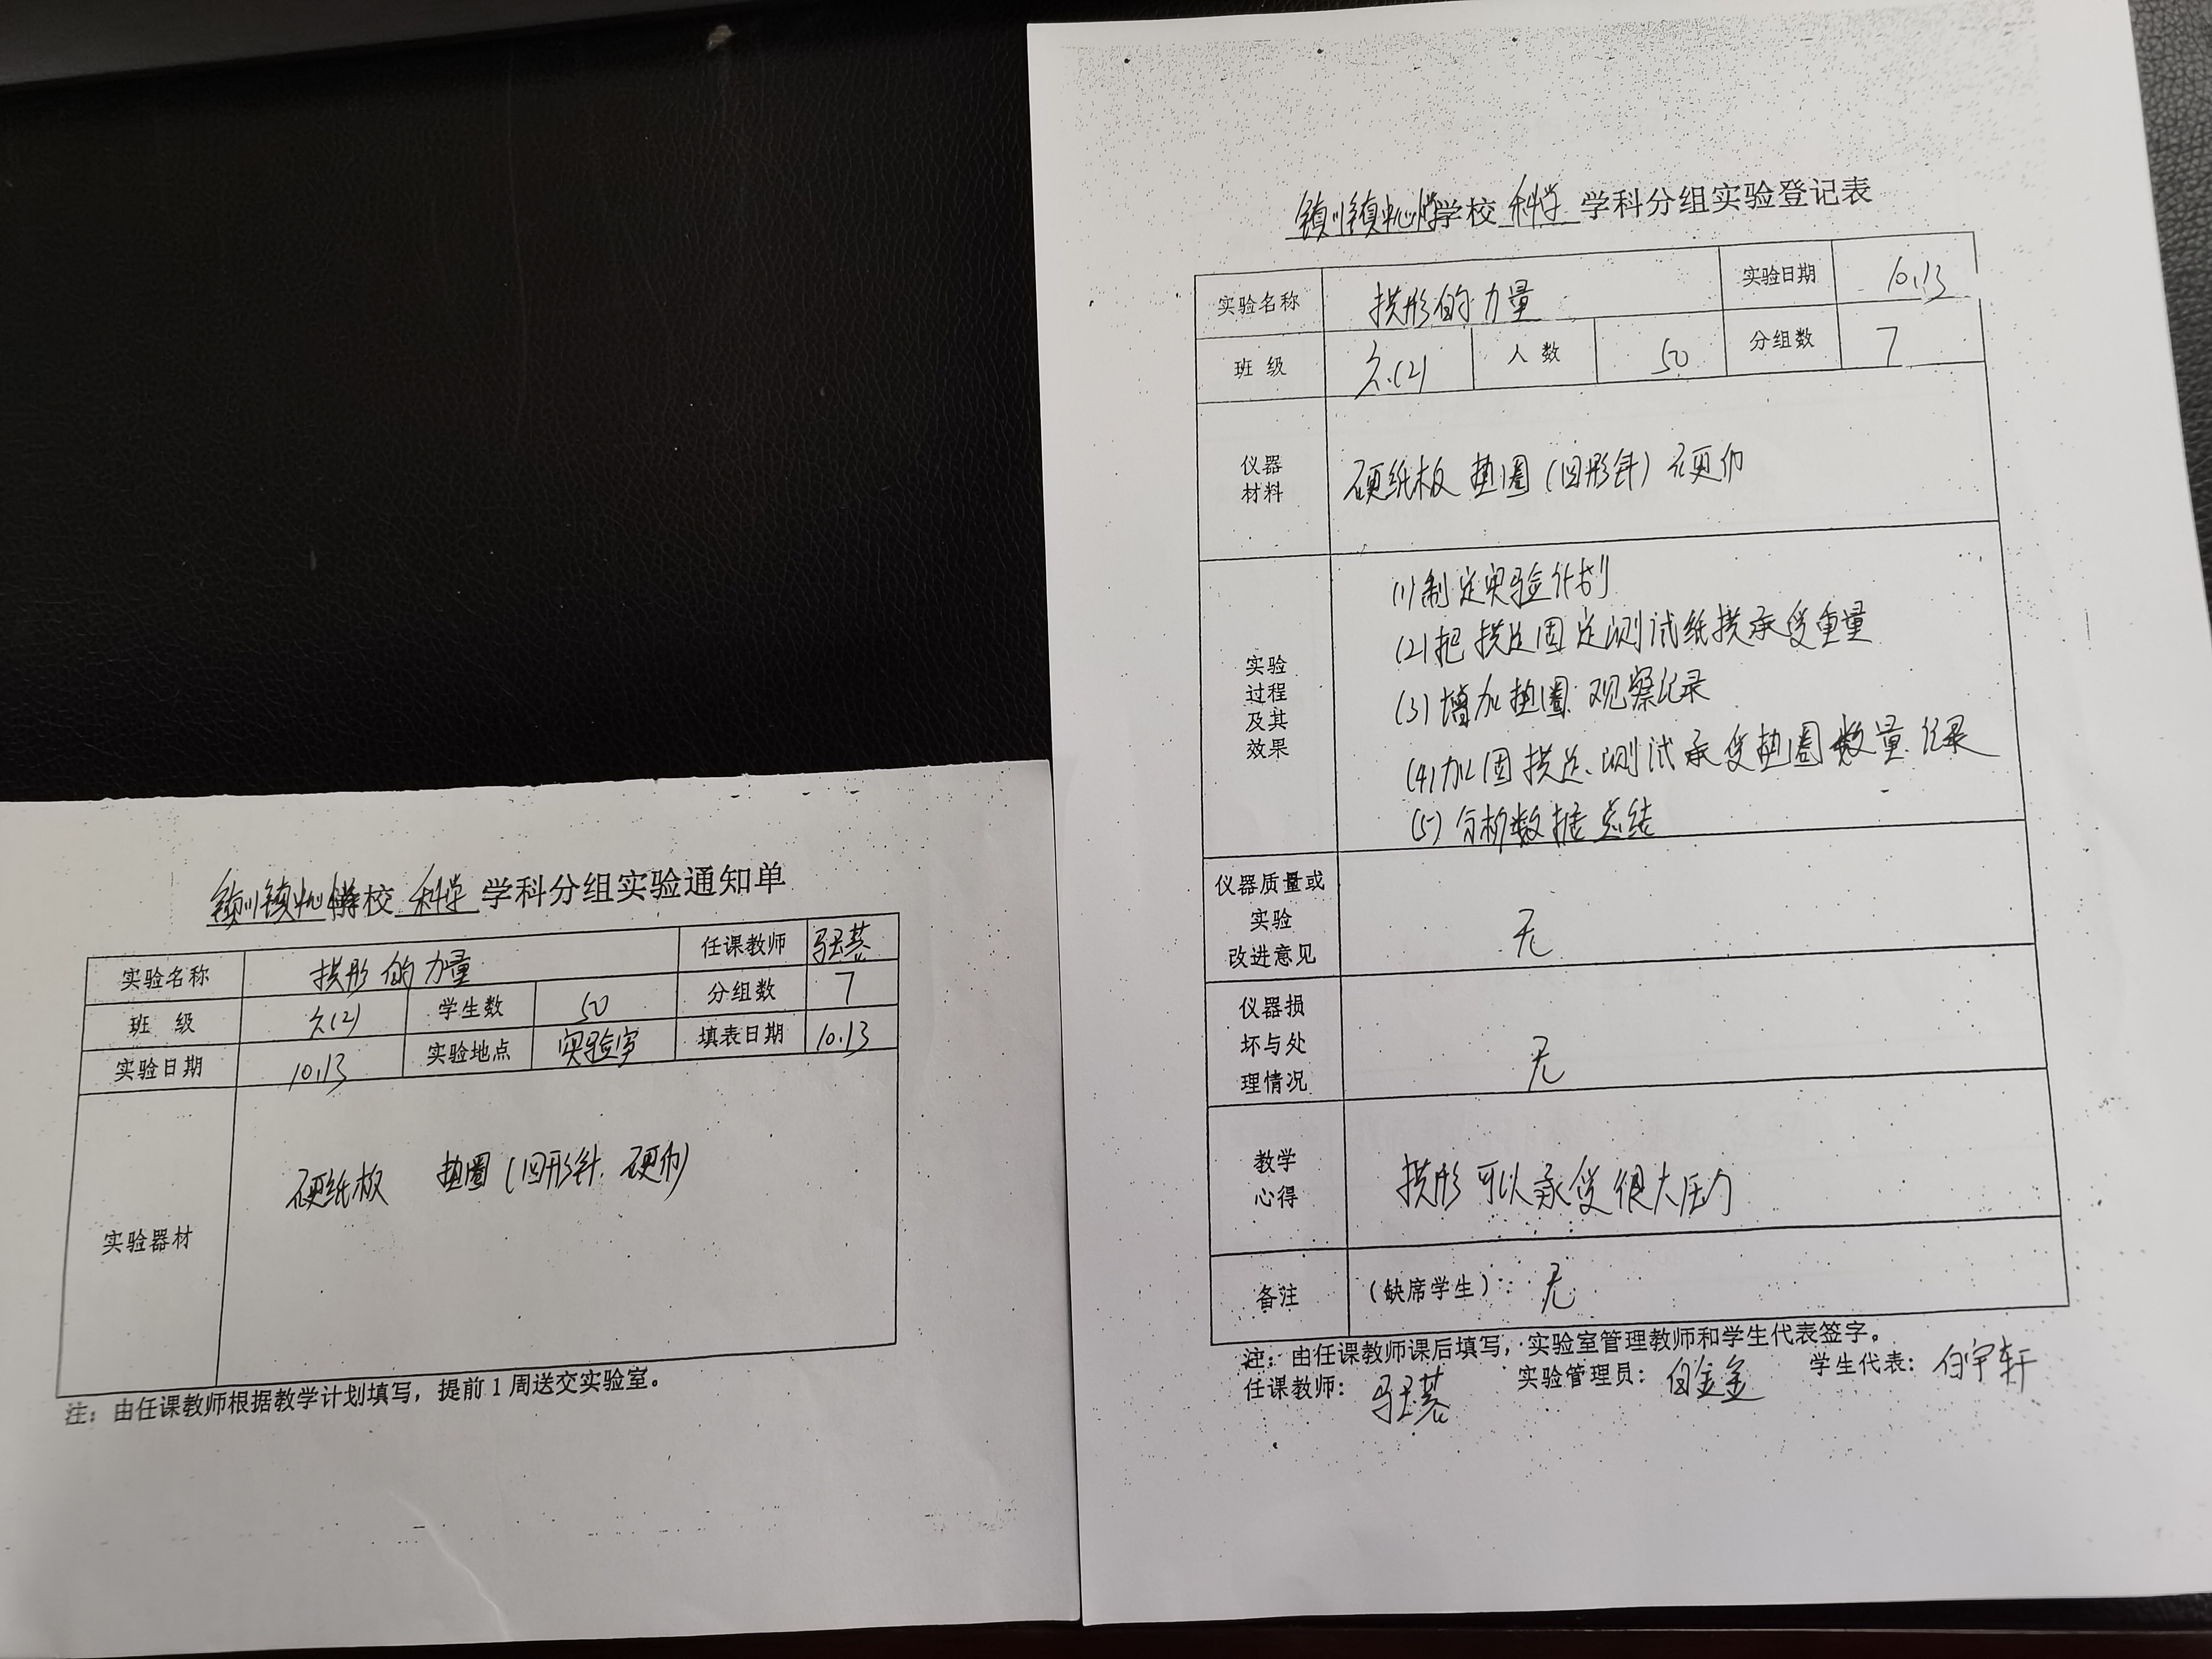 镇川镇中心小学学校 科学 学科分组实验通知单
实验名称 拱形的力量 任课教师
班 级 六(2) 学生数 50 分组数 7
实验日期 10.13 实验地点 实验室 填表日期 10.13
实验器材 硬纸板 垫圈(回形针.硬币)
注：由任课教师根据教学计划填写，提前1周送交实验室。
镇川镇中心小学学校 科学 学科分组实验登记表
实验名称 拱形的力量 实验日期 10.13
班 级 六.(2) 人 数 50 分组数 7
仪器
材料
硬纸板 垫圈(回形针) 硬币
实验
过程
及其
效果
(1)制定实验计划
(2)把拱足固定测试纸拱承受重量
(3)增加垫圈.观察记录
(4)加固拱足.测试承受垫圈数量.记录
(5)分析数据总结
仪器质量或
实验
改进意见
无
仪器损
坏与处
理情况
无
教学
心得
拱形可以承受很大压力
备注 (缺席学生)：无
注：由任课教师课后填写，实验室管理教师和学生代表签字。
任课教师： 实验管理员：白金金 学生代表：白宇轩